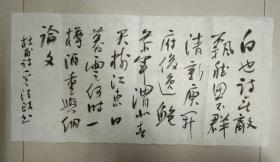 白也詩无敵
飄然思不群
清新庾开
府俊逸鮑
参军渭北春
天树江东日
暮雲何时一
樽酒重與细
論文
杜甫詩